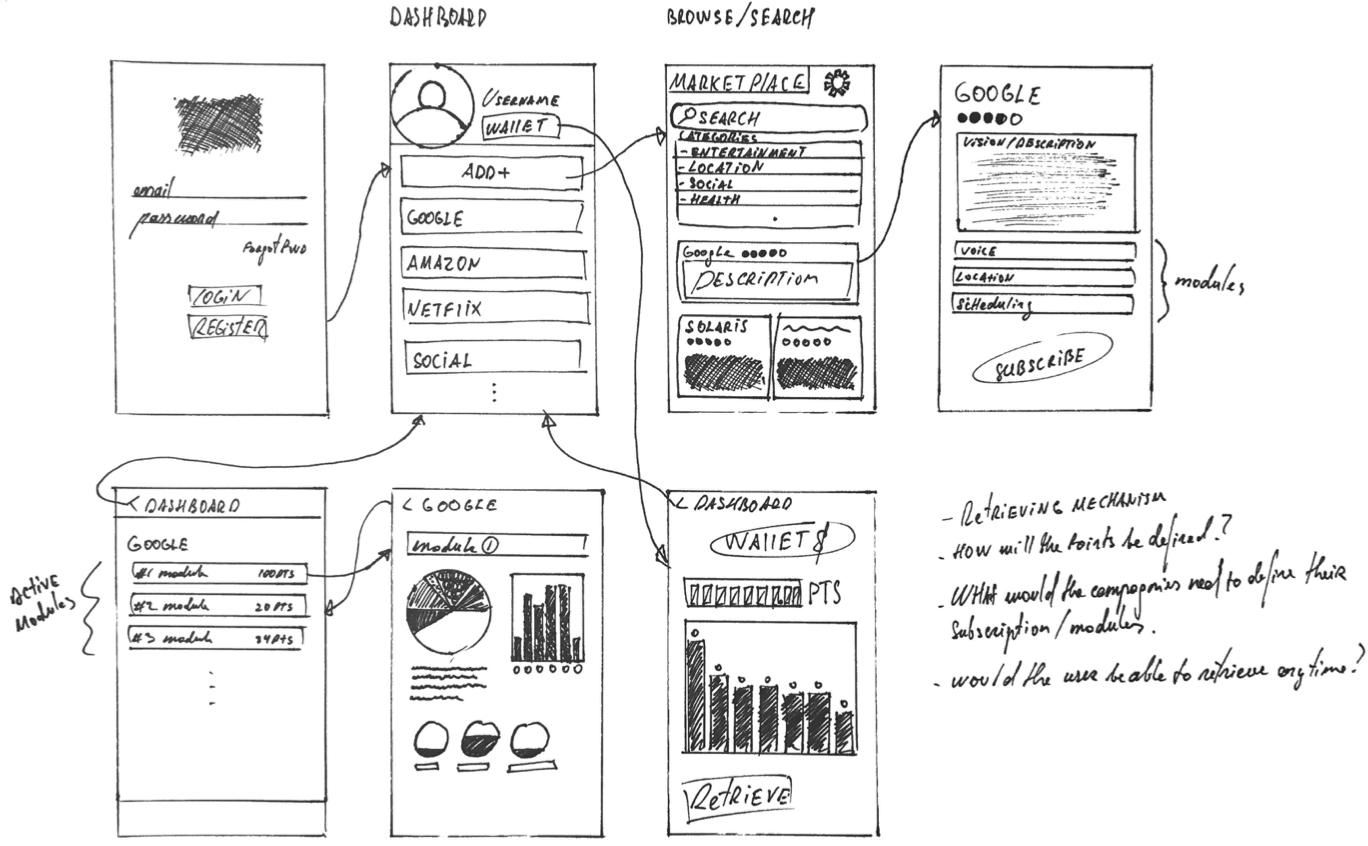 DASHBOARD
BROWSE/SEARCH
email
password
Forgot PWD
LOGIN
REGISTER
USERNAME
WALLET
ADD+
GOOGLE
AMAZON
NETFLIX
SOCIAL
MARKETPLACE
SEARCH
CATEGORIES
- ENTERTAINMENT
- LOCATION
- SOCIAL
- HEALTH
Google
DESCRIPTION
SOLARIS
GOOGLE
VISION/DESCRIPTION
VOICE
LOCATION
SCHEDULING
modules
SUBSCRIBE
< DASHBOARD
GOOGLE
ACTIVE
MODULES
#1 module 100PTS
#2 module 20PTS
#3 module 34PTS
< GOOGLE
module 1
< DASHBOARD
WALLET $
PTS
RETRIEVE
- RETRIEVING MECHANISM
- HOW will the points be defined?
- WHAT would the compagnies need to define their
subscription/modules.
- would the user be able to retrieve anytime?